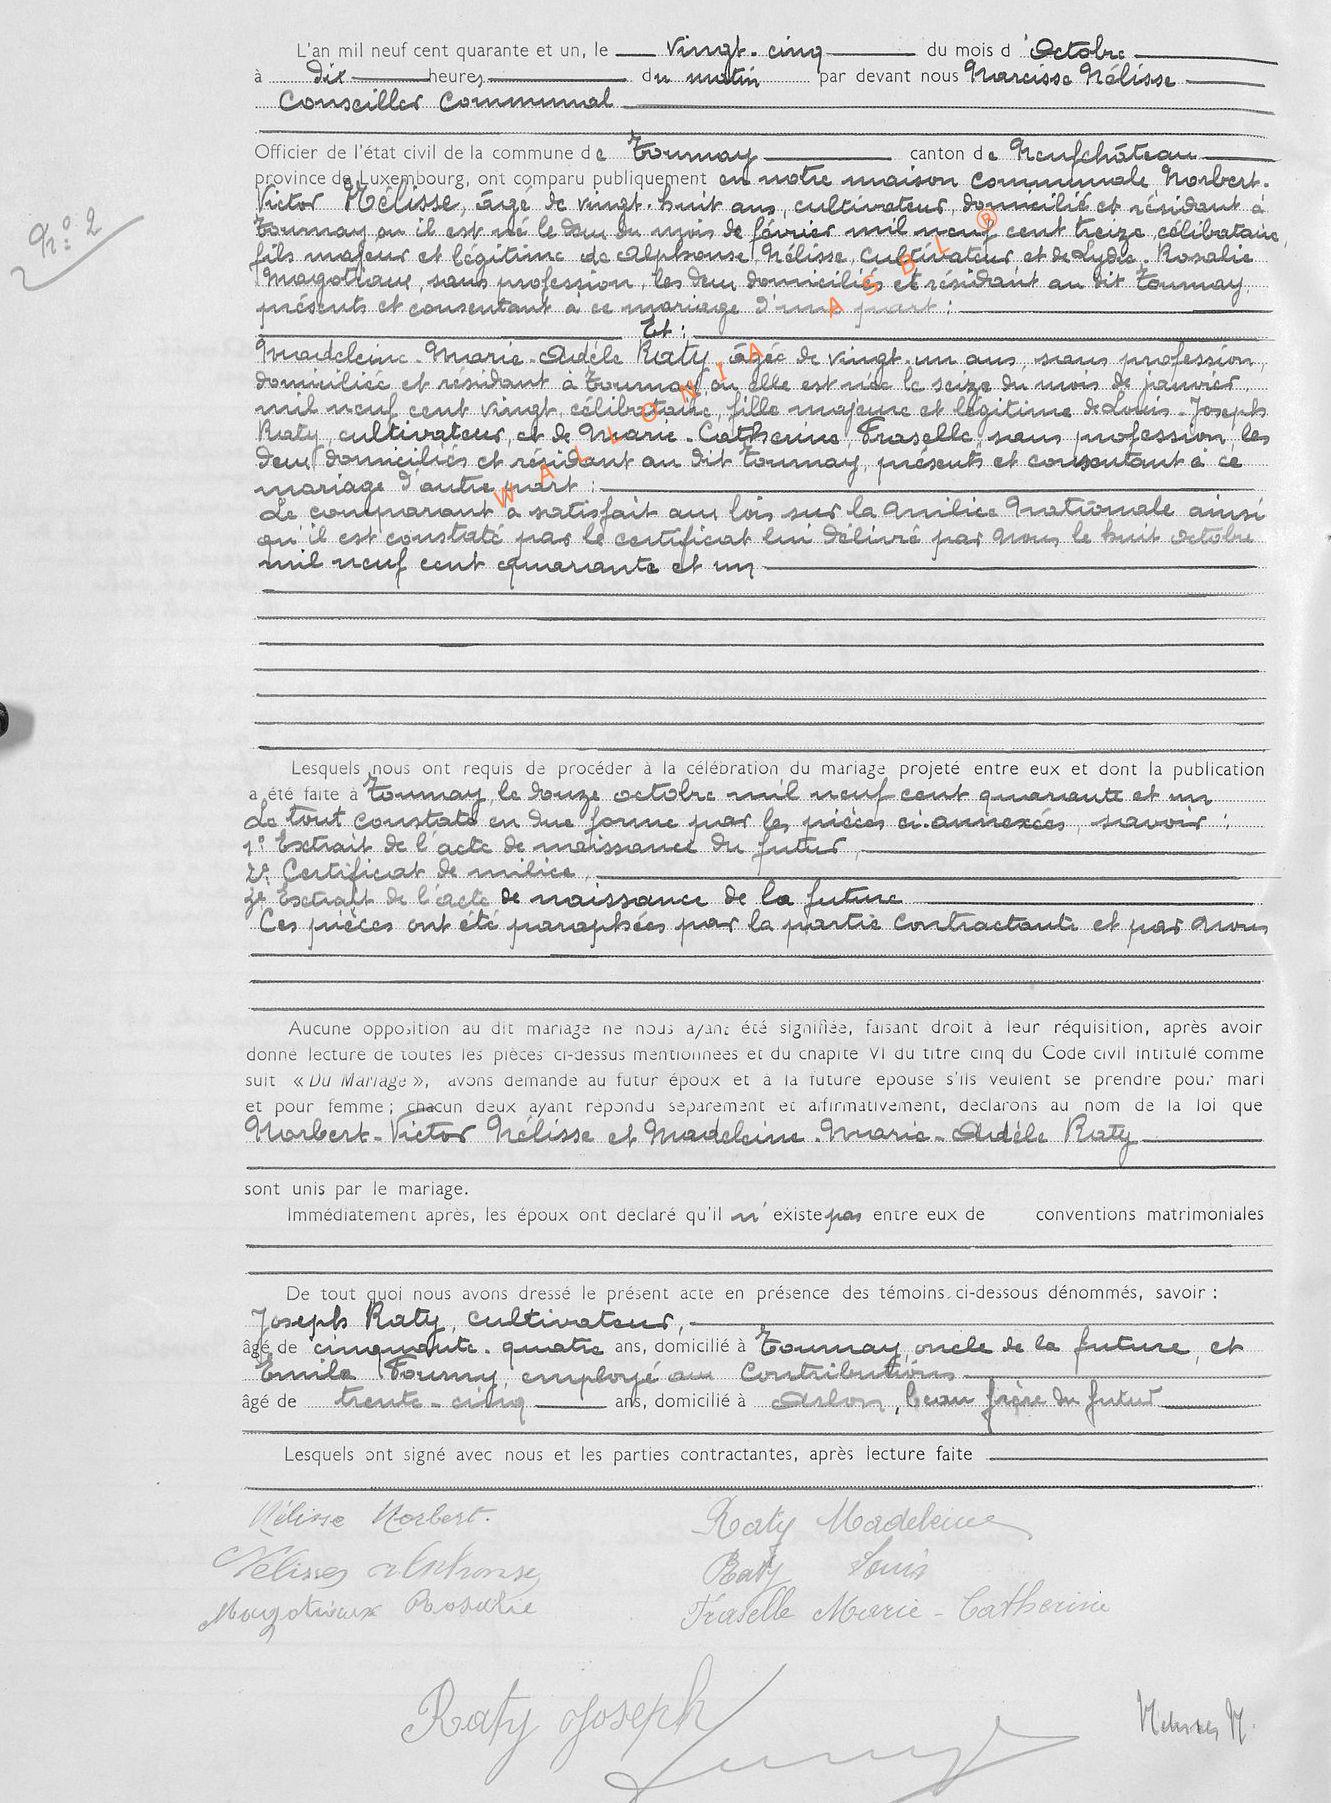 L'an mil neuf cent quarante et un, le vingt-cinq du mois d'Octobre
à dix heures du matin par devant nous Narcisse Nélisse
Conseiller Communal
Officier de l'état civil de la commune de Tournay canton de Neufchâteau
province de Luxembourg, ont comparu publiquement en notre maison communale Norbert-
N° 2
Victor Nélisse, âgé de vingt-huit ans, cultivateur, domicilié et résidant à
Tournay ou il est né le deux du mois de février mil neuf cent treize, célibataire,
fils majeur et légitime de Alphonse Nélisse, Cultivateur et de Lydie-Rosalie
Magotiaux, sans profession, les deux domiciliés et résidant au dit Tournay
présents et consentant à ce mariage d'une part :
Et :
Madeleine-Marie-Adèle Raty, âgée de vingt-un ans, sans profession,
domiciliée et résidant à Tournay ou elle est née le seize du mois de janvier,
mil neuf cent vingt, célibataire, fille majeure et légitime de Louis-Joseph
Raty, cultivateur, et de Marie-Catherine Fraselle, sans profession, les
deux domiciliés et résidant au dit Tournay, présents et consentant à ce
mariage d'autre part :
WALLONIA ASBL ®
Le comparant a satisfait aux lois sur la milice Nationale ainsi
qu'il est constaté par le certificat lui délivré par nous le huit octobre
mil neuf cent quarante et un
Lesquels nous ont requis de procéder à la célébration du mariage projeté entre eux et dont la publication
a été faite à Tournay, le douze octobre mil neuf cent quarante et un
Le tout constaté en due forme par les pièces ci-annexées, savoir :
1° Extrait de l'acte de naissance du futur,
2° Certificat de milice,
3° Extrait de l'acte de naissance de la future
Ces pièces ont été paraphées par la partie contractante et par nous
Aucune opposition au dit mariage ne nous ayant été signifiée, faisant droit à leur réquisition, après avoir
donné lecture de toutes les pièces ci-dessus mentionnées et du chapite VI du titre cinq du Code civil intitulé comme
suit « Du Mariage », avons demandé au futur époux et à la future épouse s'ils veulent se prendre pour mari
et pour femme ; chacun deux ayant répondu séparément et affirmativement, déclarons au nom de la loi que
Norbert-Victor Nélisse et Madeleine-Marie-Adèle Raty
sont unis par le mariage.
Immédiatement après, les époux ont déclaré qu'il n'existe pas entre eux de conventions matrimoniales
De tout quoi nous avons dressé le présent acte en présence des témoins ci-dessous dénommés, savoir :
Joseph Raty, cultivateur,
âgé de cinquante-quatre ans, domicilié à Tournay, oncle de la future, et
Emile Fourny, employé aux Contributions
âgé de trente-cinq ans, domicilié à Arlon, beau frère du futur
Lesquels ont signé avec nous et les parties contractantes, après lecture faite
Nélisse Norbert. Raty Madeleine
Nélisse Alphonse Raty Louis
Magotiaux Rosalie Fraselle Marie-Catherine
Raty Joseph
Nélisse N.